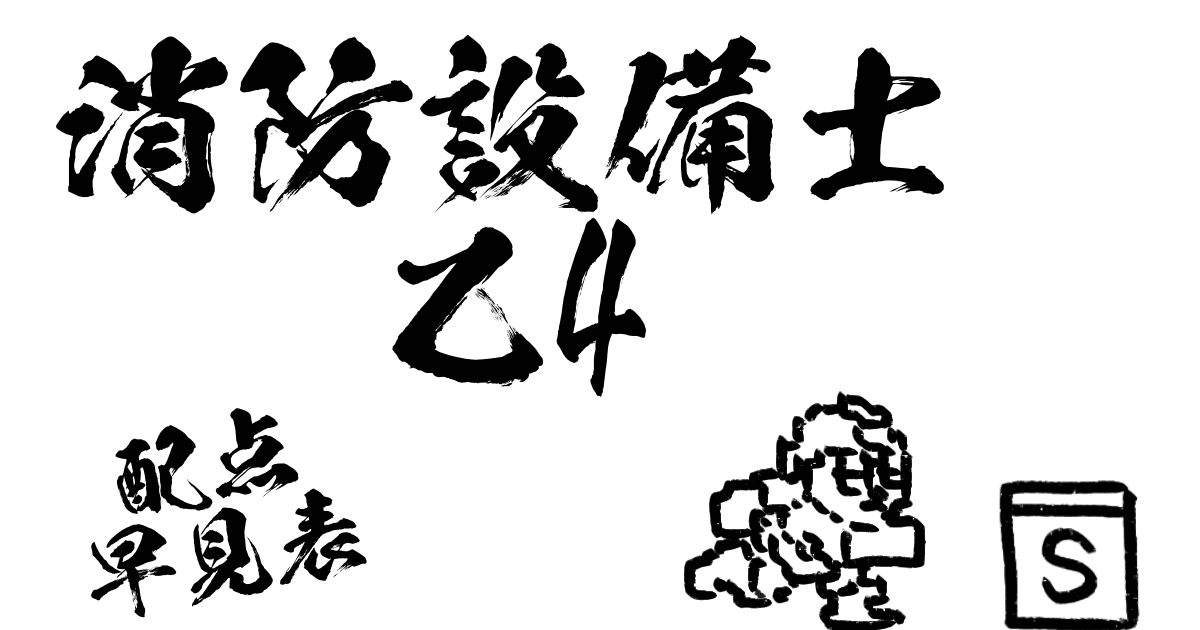 消防設備士
乙4
配点
早見表
S